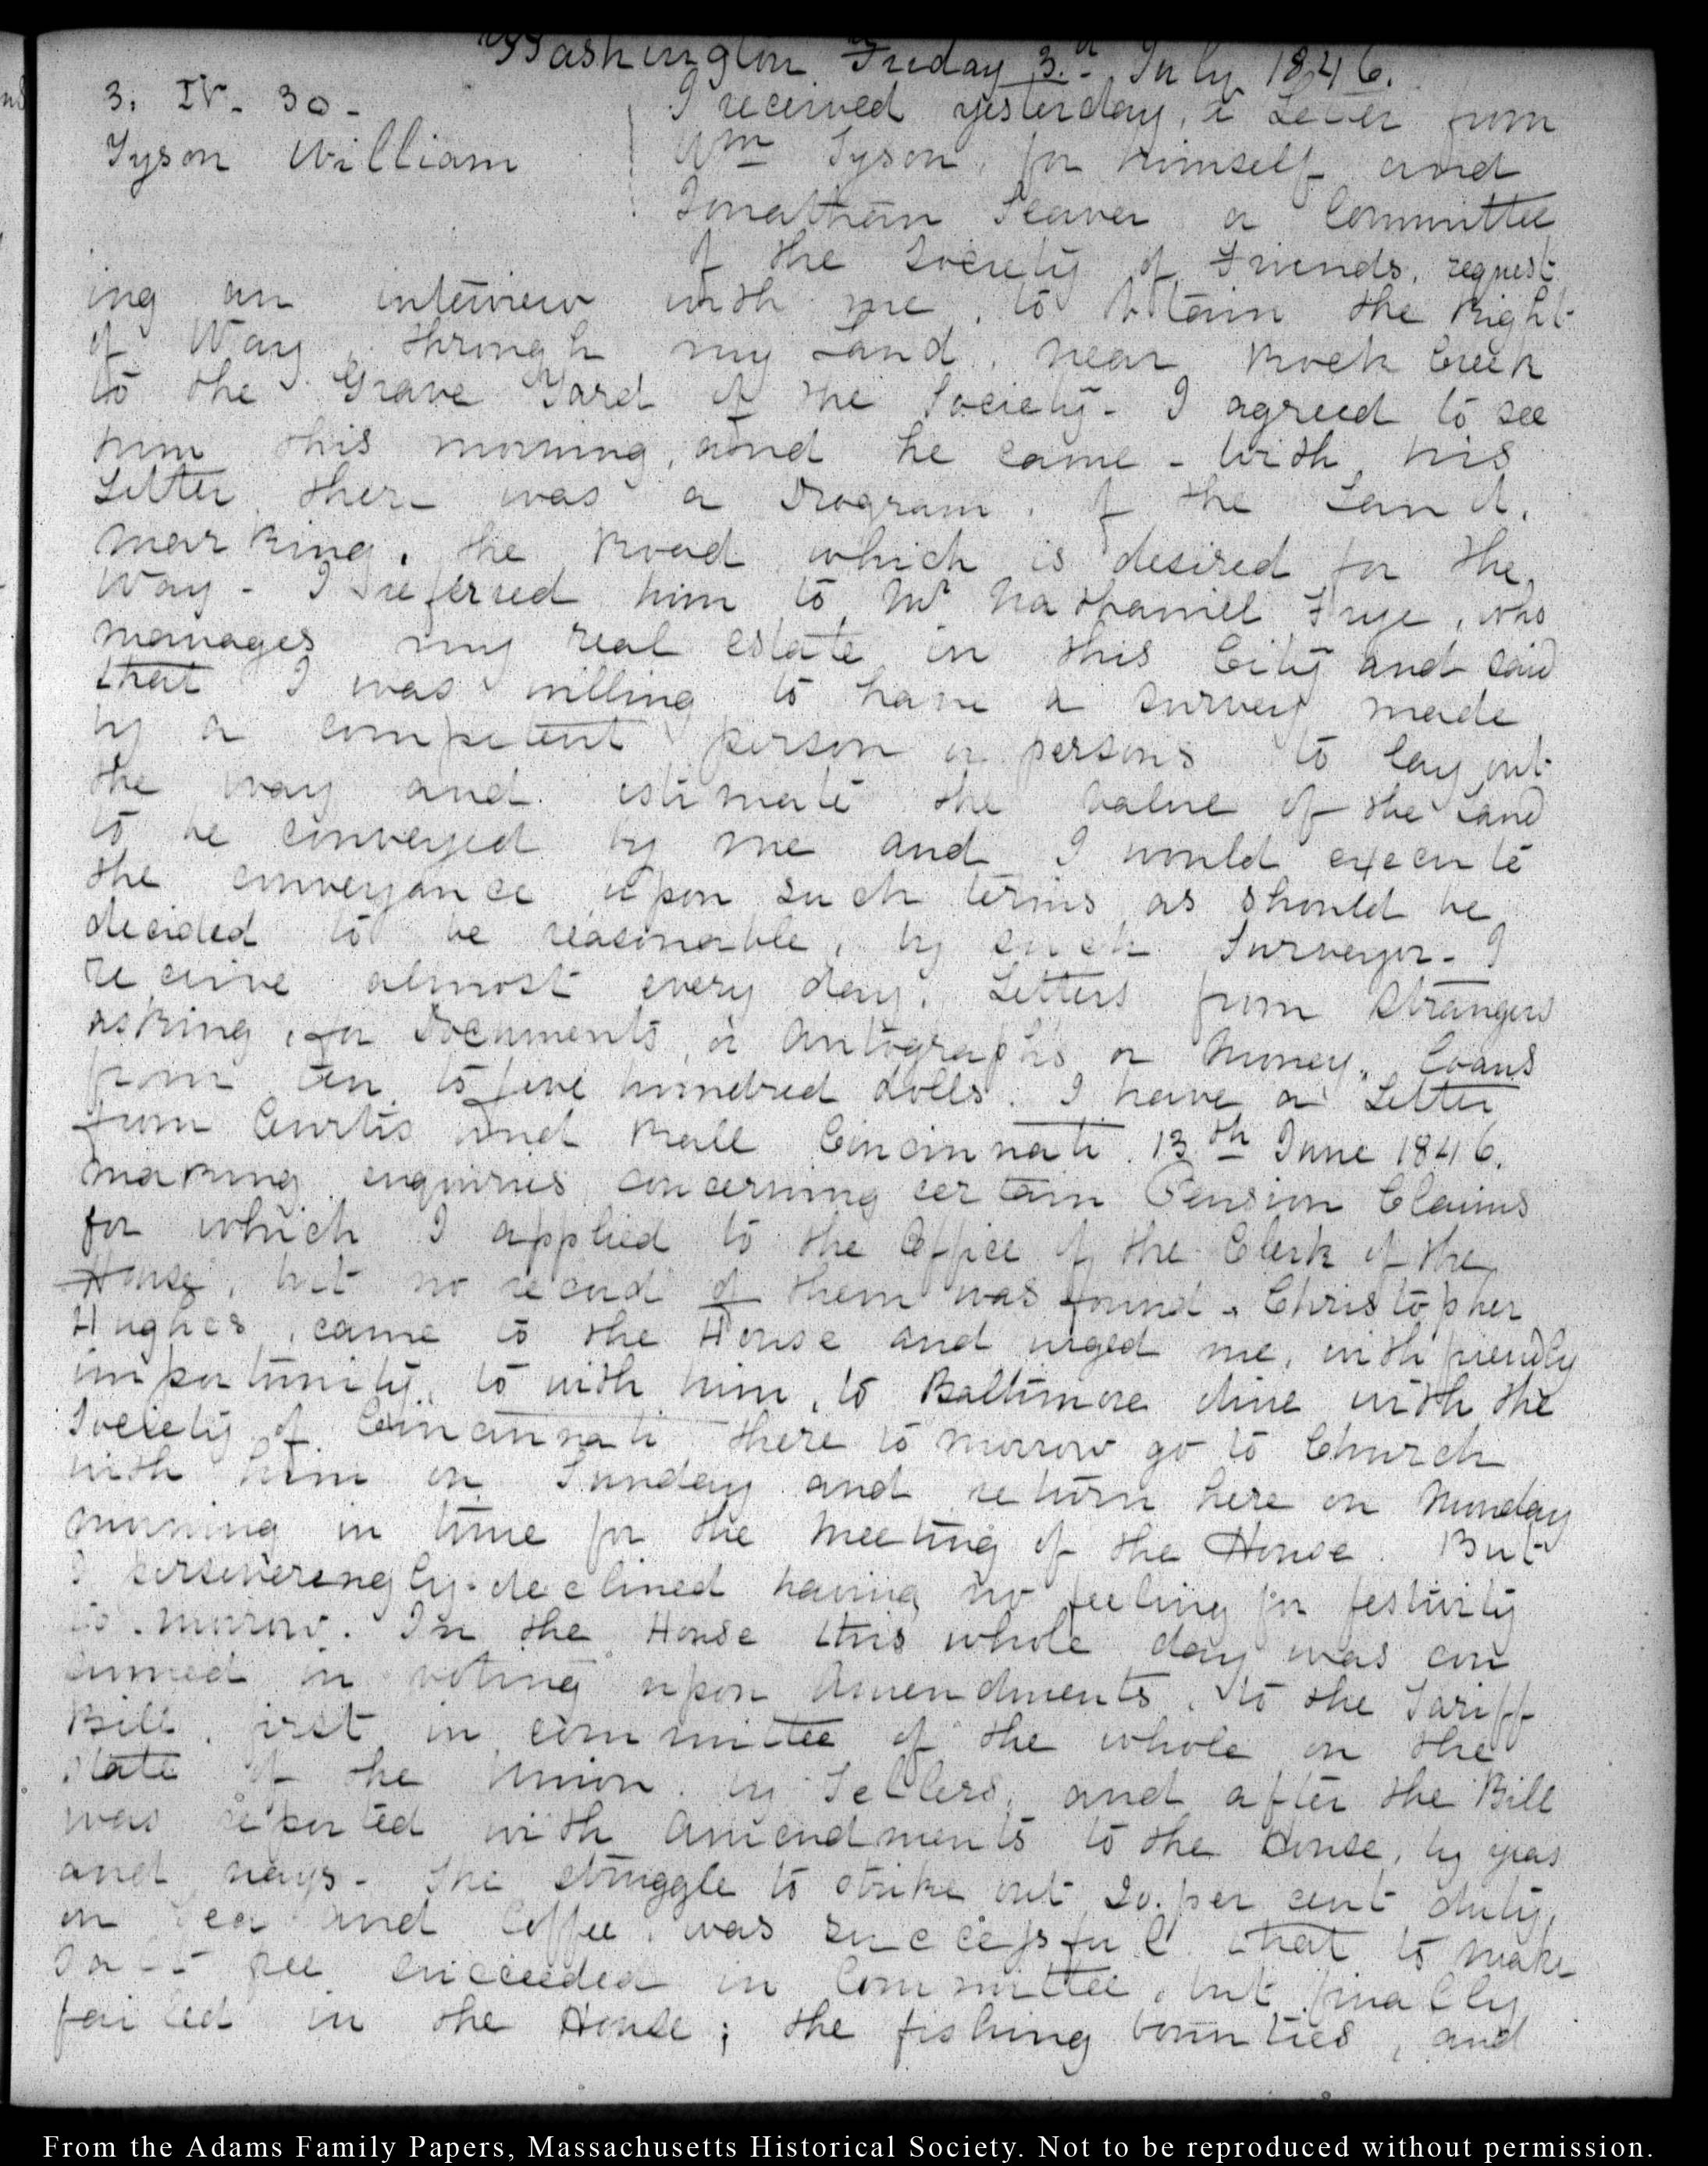 Washington Friday 3.d July 1846.
3. IV. 30.
Tyson William
I received yesterday, a Letter from
Wm Tyson, for himself and
Jonathan Seaver a Committee
of the Society of Friends, request
ing an interview with me, to obtain the Right
of Way, through my Land, near Rock Creek
to the Grave Yard of the Society- I agreed to see
him this morning, and he came - With his
Letter there was a Diogram, of the Land,
marking, the Road which is desired for the
Way - I referred him to Mr. Nathaniel Frye, who
manages my real estate in this City and said
that I was willing to have a survey made
by a competent person or persons to lay out
the way and estimate the value of the Land
to be conveyed by me and I would execute
the conveyance upon such terms as should be
decided to be reasonable, by such Surveyor- I
receive almost every day, Letters from Strangers
asking, for Documents, or Autographs or Money, Loans
from ten to five hundred dolls. I have a Letter
from Curtis and Hall Cincinnati 13th June 1846.
making enquiries concerning certain Pension Claims
for which I applied to the Office of the Clerk of the
House, but no record of them was found. Christopher
Hughes, came to the House and urged me, with friendly
importunity, to with him, to Baltimore dine with the
Society of Cincinnati there to morrow go to Church
with him on Sunday and return here on Monday
morning in time for the meeting of the House. But
I perseveringly declined having no feeling for festivity
to-morrow. In the House this whole day was con
sumed in voting upon Amendments, to the Tariff
Bill, first in committee of the whole on the
state of the Union, by Tellers, and after the Bill
was reported with Amendments to the House, by yeas
and nays- The struggle to strike out 20. per cent duty,
on Tea and Coffee, was successful that to make
Salt free succeeded in Committee, but finally
failed in the House; the fishing bounties, and
From the Adams Family Papers, Massachusetts Historical Society. Not to be reproduced without permission.